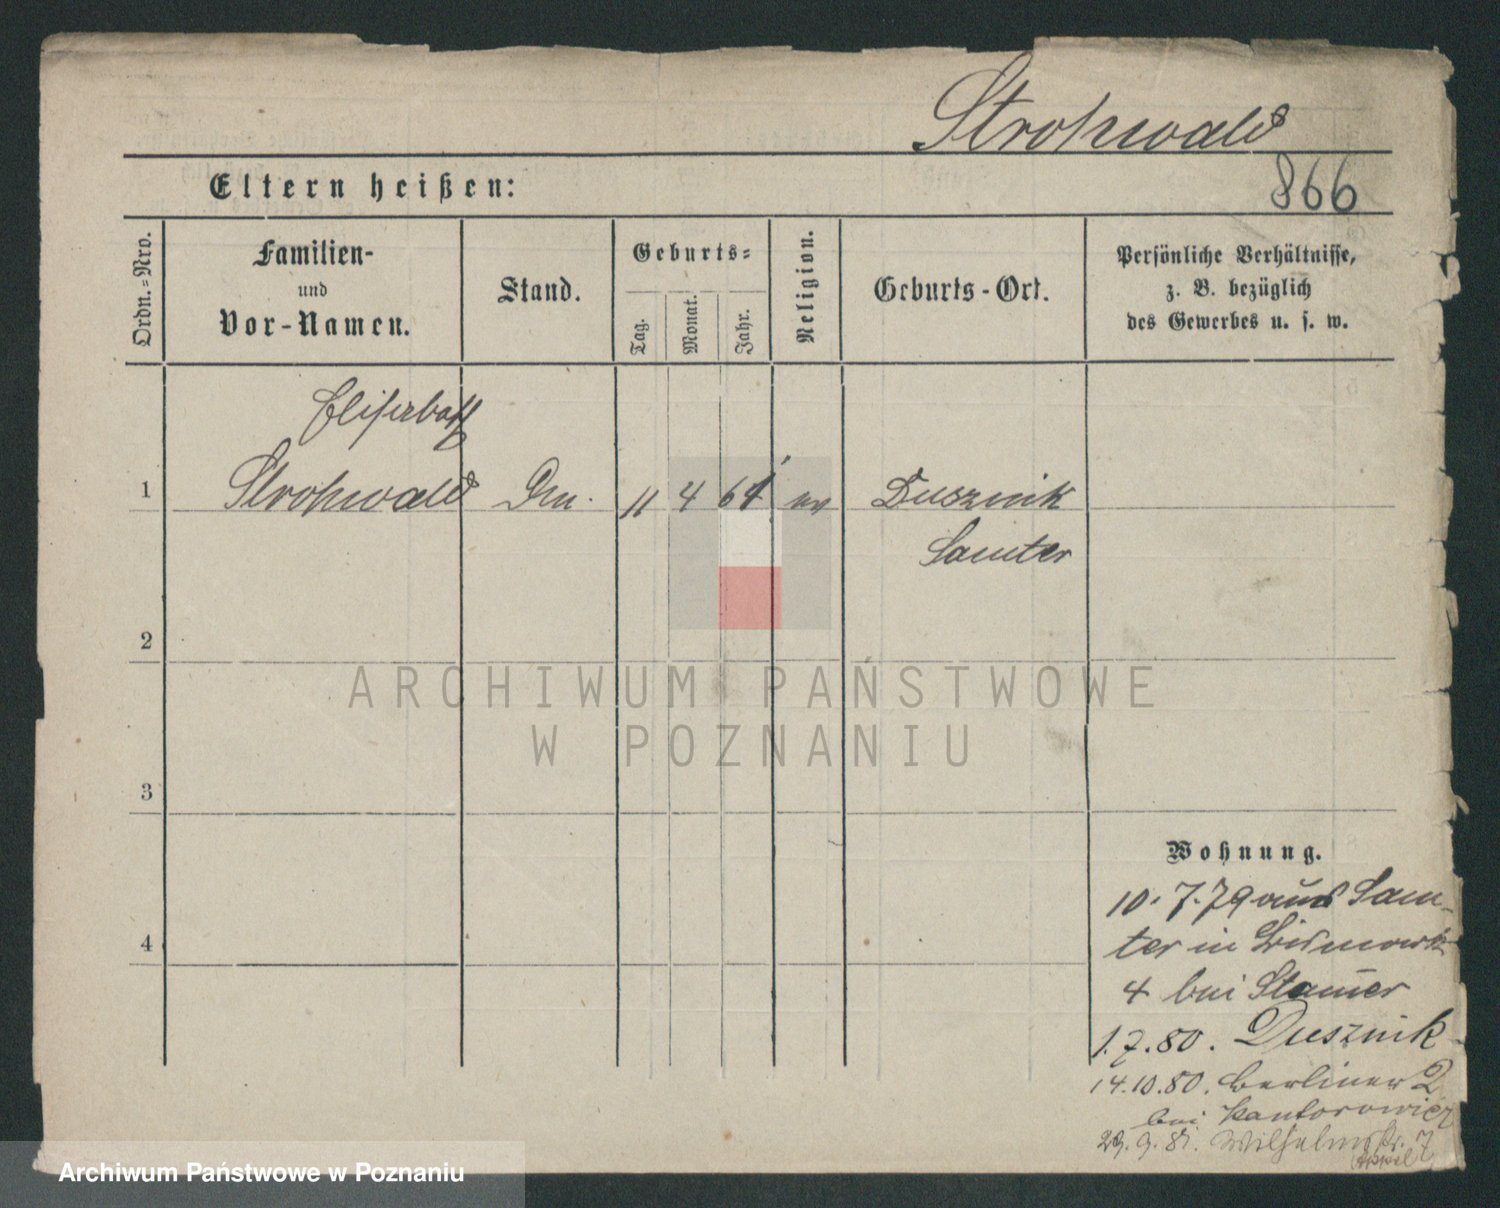 Strohwald
Eltern heißen:
866
Ordn.-Nro.
Familien-
und
Vor-Namen.
Stand.
Geburts-
Tag.
Monat.
Jahr.
Religion.
Geburts-Ort.
Persönliche Verhältnisse,
z. B. bezüglich
des Gewerbes u. s. w.
Elisabeth
1 Strohwald 11 4 64 ev Dusznik
Samter
2
ARCHIWUM PAŃSTWOWE
W POZNANIU
3
Wohnung.
10. 7. 79 aus Sam-
4
ter in Bismark
4 bei Stamer
1. 7. 80. Dusznik
14.10.80. Berliner 2
bei Kantorowicz
29. 9. 81. Wilhelmstr. 7
Appel
Archiwum Państwowe w Poznaniu